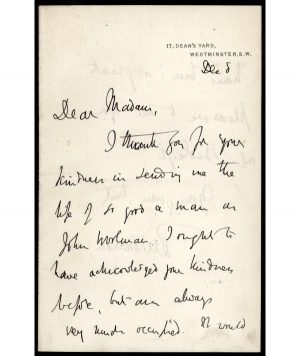 17, DEAN'S YARD,
WESTMINSTER, S.W.
Dec 8
Dear Madam,
I thank you for your
kindness in sending me the
life of so good a man as
John Woolman. I ought to
have acknowledged your kindness
before, but am always
very much occupied. It would